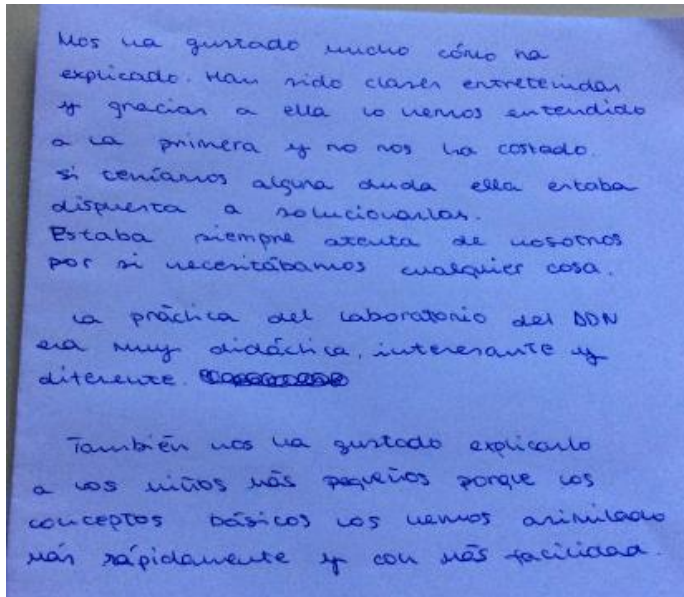 Nos ha gustado mucho cómo ha
explicado. Han sido clases entretenidas
y gracias a ella lo hemos entendido
a la primera y no nos ha costado.
si teníamos alguna duda ella estaba
dispuesta a solucionarlas.
Estaba siempre atenta de nosotros
por si necesitábamos cualquier cosa.
La práctica del laboratorio del ADN
era muy didáctica, interesante y
diferente.
También nos ha gustado explicarlo
a los niños más pequeños porque los
conceptos básicos los hemos asimilado
más rápidamente y con más facilidad.